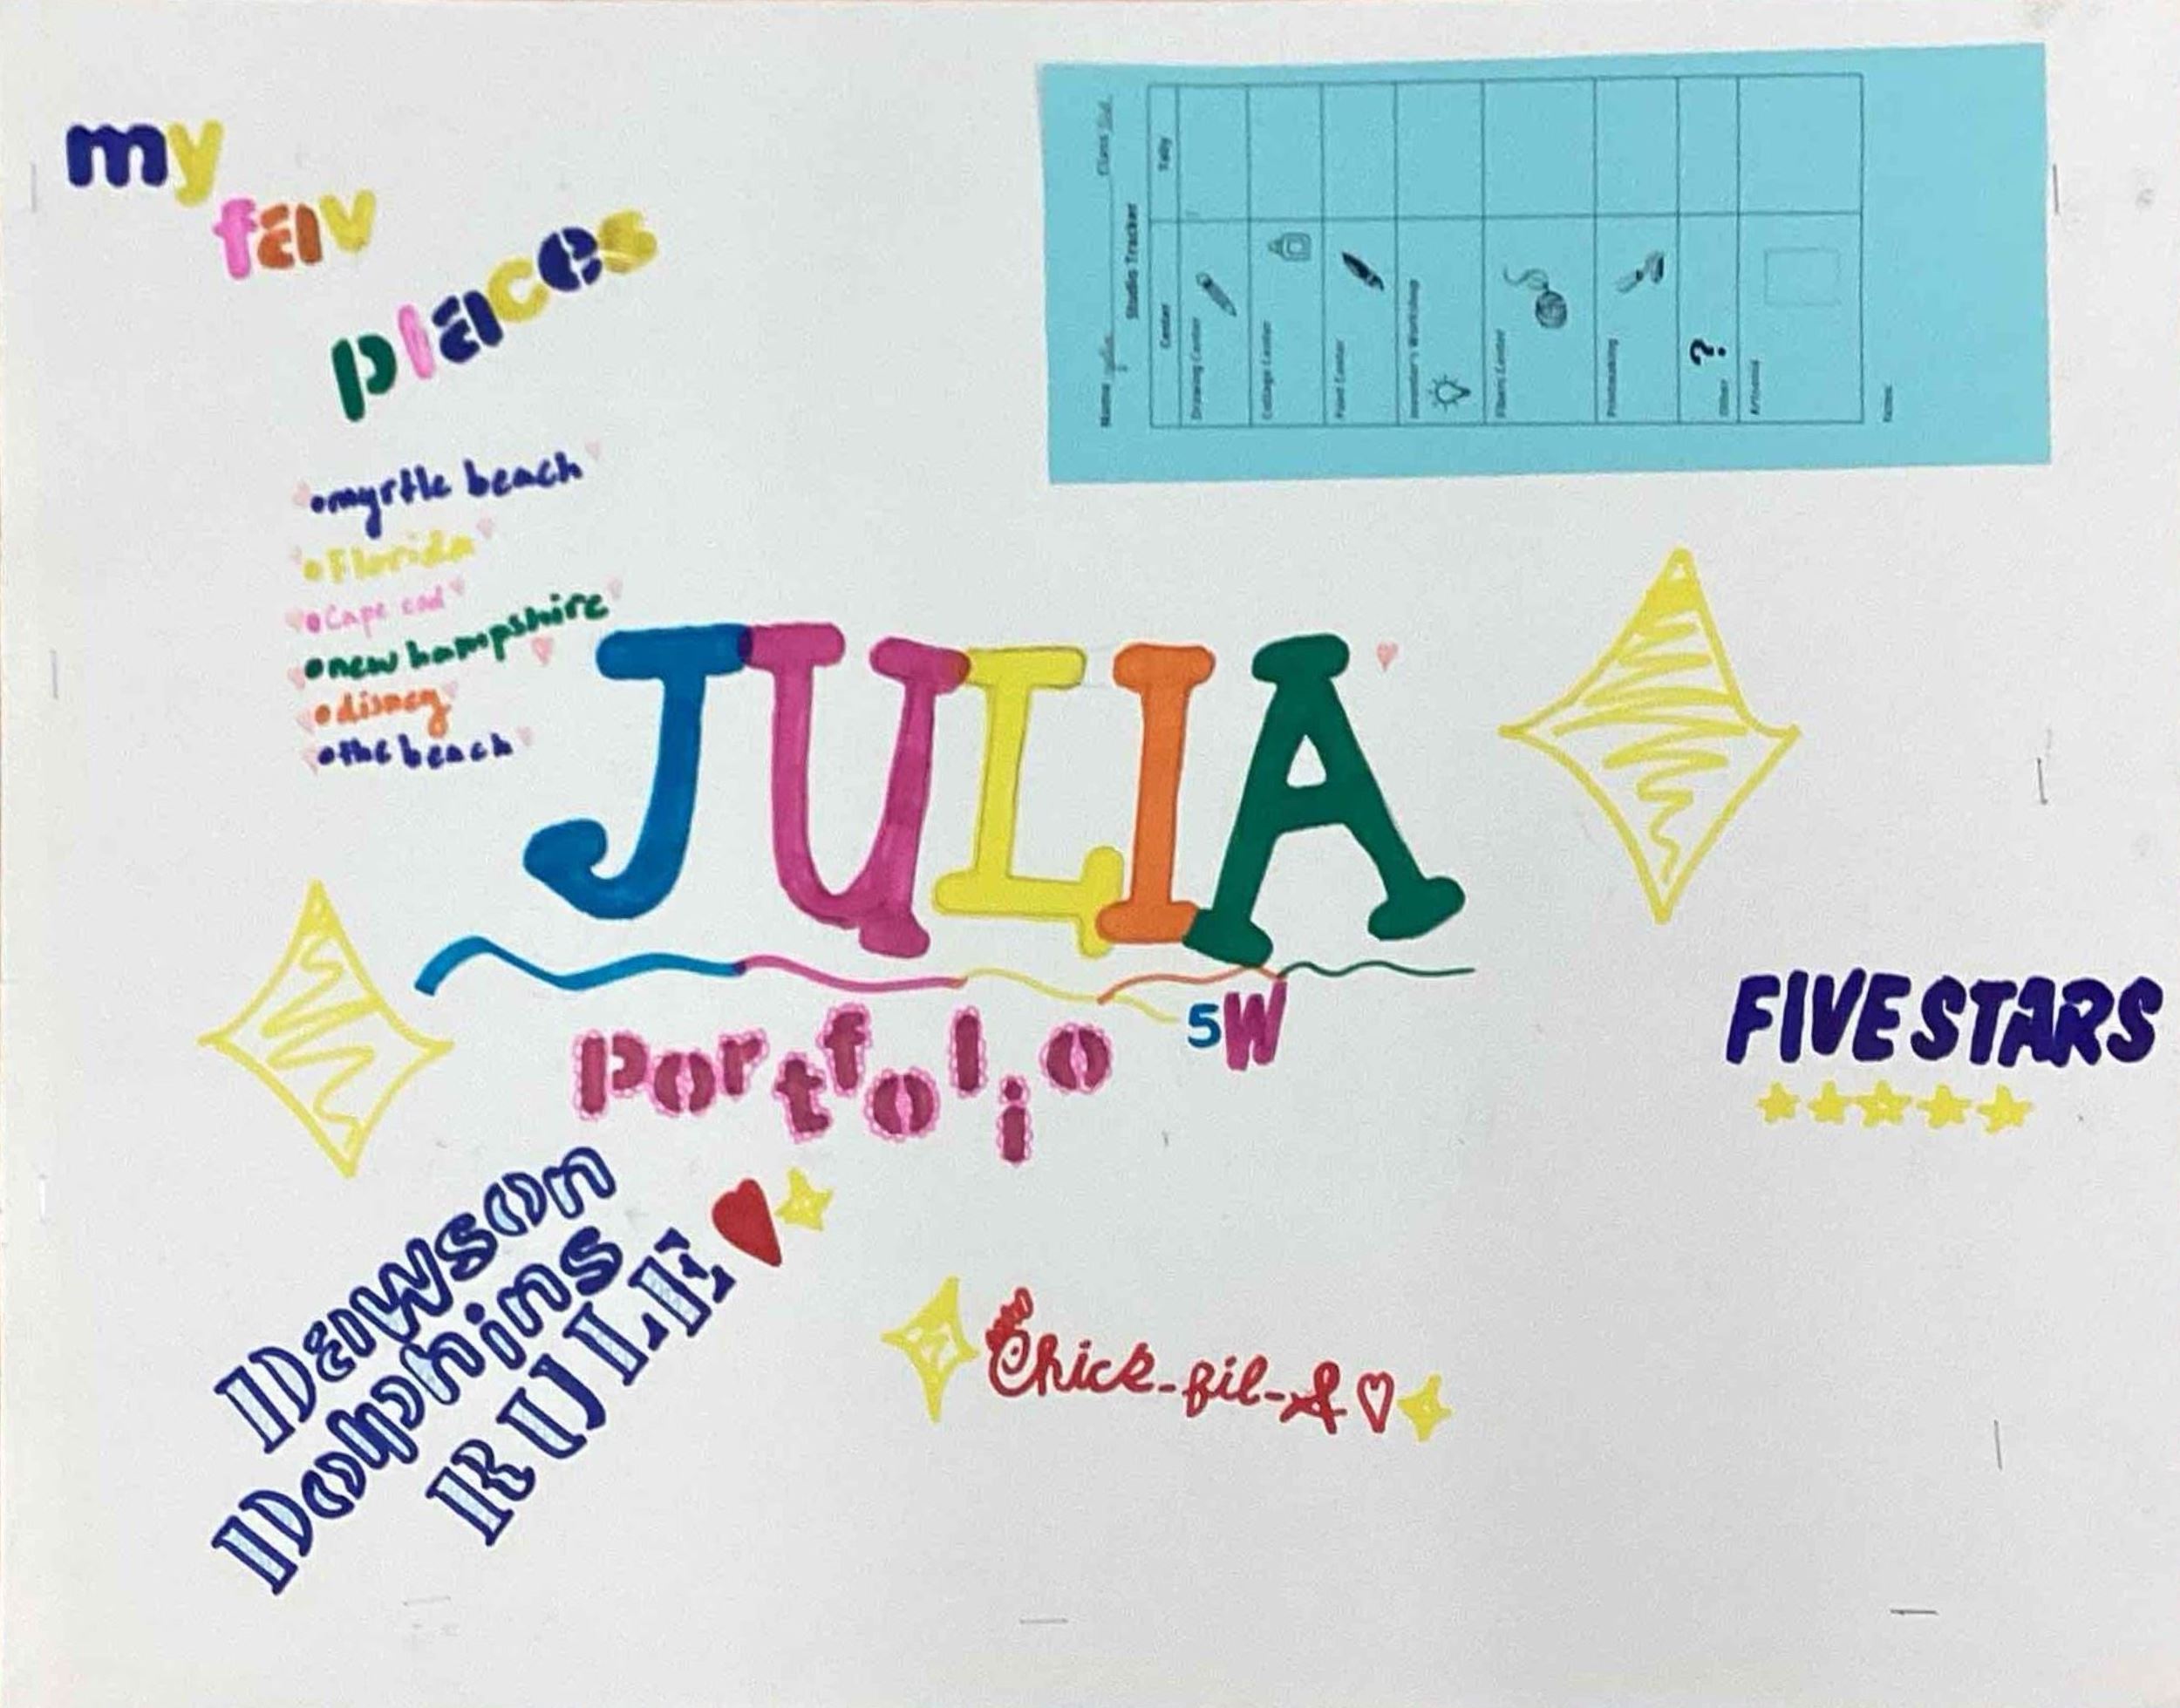 my
fav
places
•myrtle beach
•Florida
•Cape cod
•new hampshire
•disney
•the beach
Name Julia Class
Studio Tracker
Center Tally
Drawing Center
Collage Center
Paint Center
Inventor's Workshop
Fibers Center
Printmaking
Other ?
Artsonia
Notes:
JULIA
Portfolio 5W
FIVE STARS
Dawson
Dolphins
RULE
Chick-fil-A